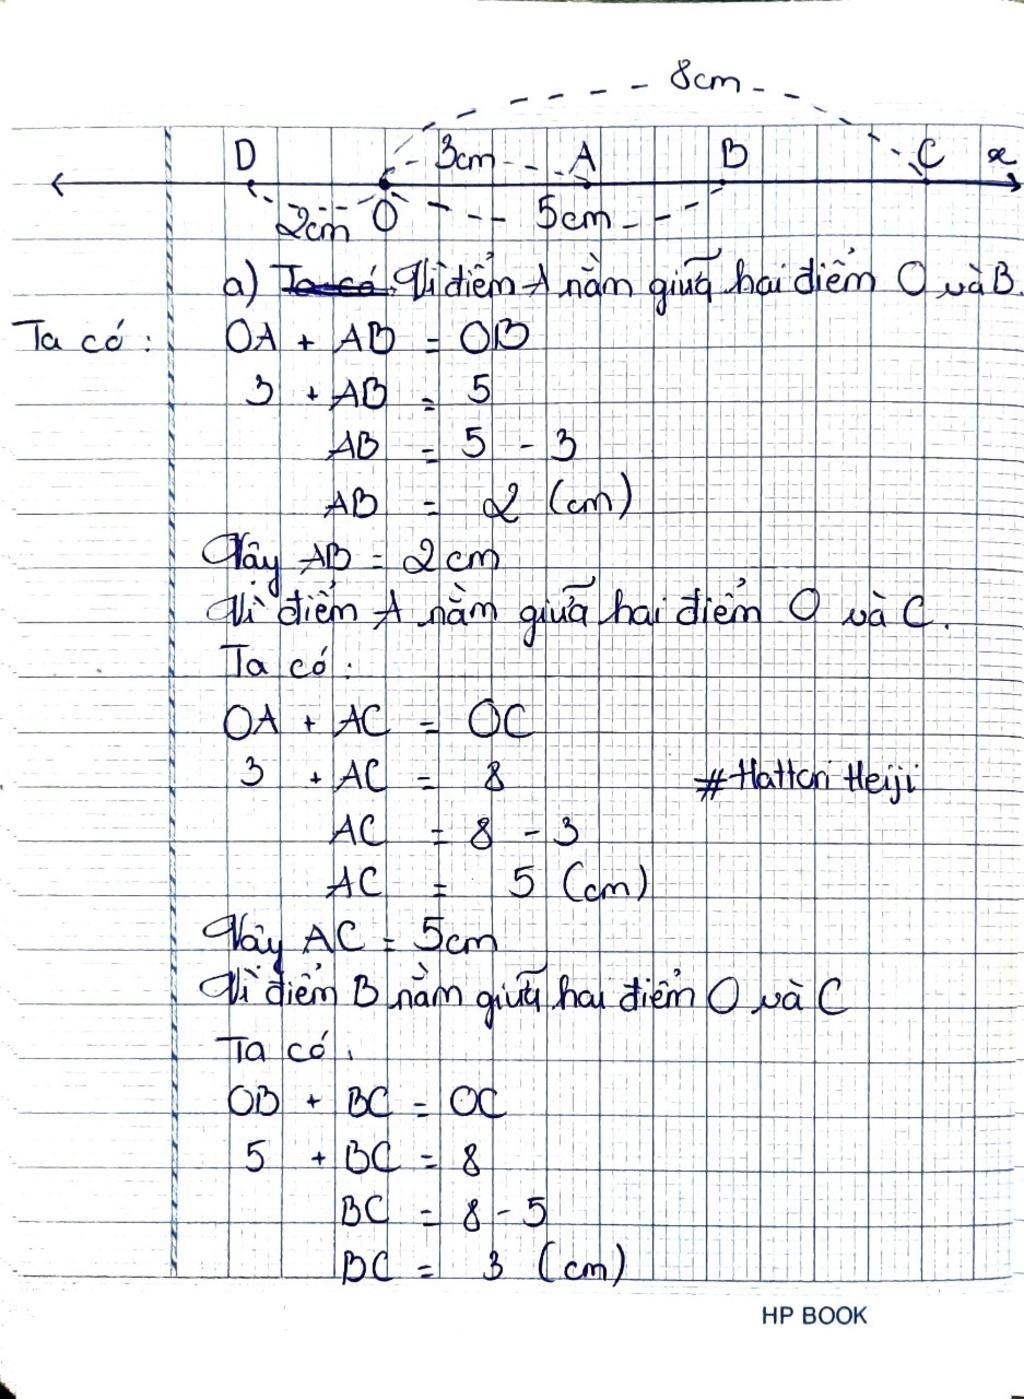 8cm
D 3cm A B C x
2cm O 5cm
a) Ta có Vì điểm A nằm giữa hai điểm O và B.
Ta có : OA + AB = OB
3 + AB = 5
AB = 5 - 3
AB = 2 (cm)
Vây AB = 2cm
Vì điểm A nằm giữa hai điểm O và C.
Ta có :
OA + AC = OC
3 + AC = 8 #Hattori Heiji
AC = 8 - 3
AC = 5 (cm)
Vây AC = 5cm
Vì điểm B nằm giữa hai điểm O và C
Ta có .
OB + BC = OC
5 + BC = 8
BC = 8 - 5
BC = 3 (cm)
HP BOOK